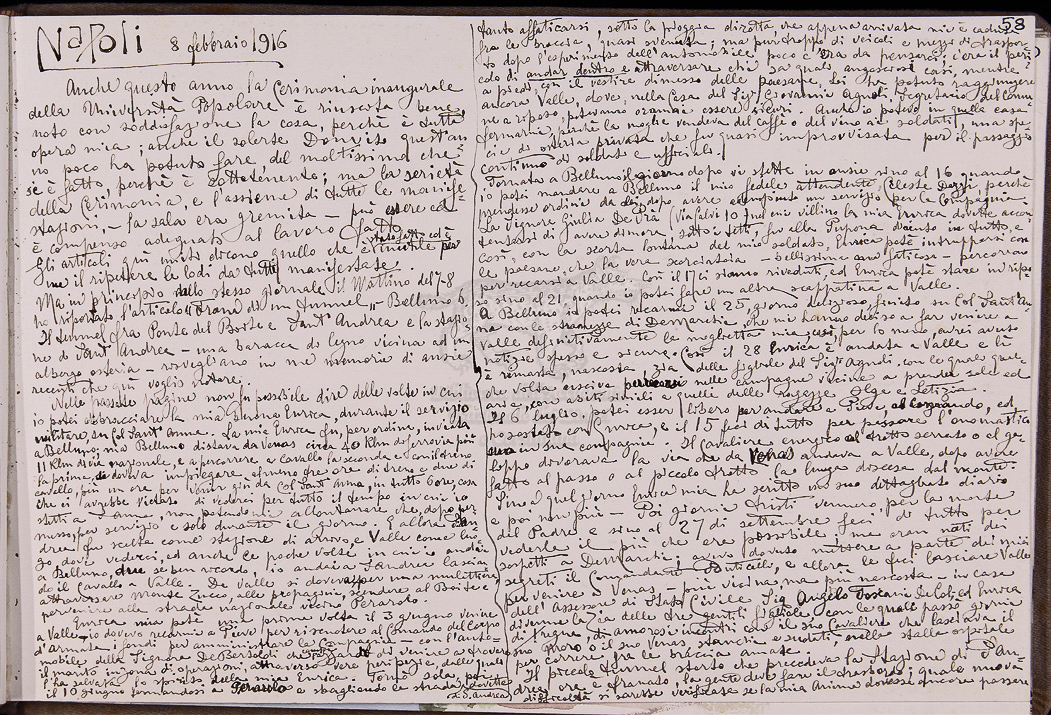 58
Napoli 8 febbraio 1916
Anche questo anno, la Cerimonia inaugurale
della Università Popolare è riuscita bene,
noto con soddisfazione la cosa, perchè è tutta
opera mia; anche il solerte Donvito quest'an
no poco ha potuto fare del moltissimo che
se è fatto, perchè è sottotenente; ma la serietà
della Cerimonia, e l'assieme di tutte le manife
stazioni, - la sala era gremita - può essere ed
è compenso adeguato al lavoro fatto.
Gli articoli qui uniti dicono quello che è stato fatto ed è inutile per
me il ripetere le lodi da tutti manifestate.
Ma in principio dello stesso giornale il Mattino del 7-8
ho riportato l'articolo "Frana di un tunnel" - Belluno 6,
Il tunnel fra Ponte del Boite e Sant'Andrea e la stazio
ne di Sant'Andrea - una baracca di legno vicina ad un
albergo osteria - risvegliano in me memorie di ansie
recenti che qui voglio notare.
Nelle passate pagine non fu possibile dire delle volte in cui
io potei abbracciare la mia buona Enrica, durante il servizio
militare, su Col Sant'Anna. La mia Enrica fu, per ordine, inviata
a Belluno; ma Belluno distava da Venas circa 40 Klm di ferrovia più
11 Klm di via nazionale, e a percorrere a cavallo la seconda e col treno
la prima, si doveva impiegare almeno tre ore di treno e due di
cavallo, più un'ora per venir giù da Col Sant'Anna, in tutto 6 ore, cosa
che ci avrebbe vietato di vederci per tutto il tempo in cui io
stetti a S. Anna, non potendomi allontanare che, dopo per
messo, per servizio e solo durante il giorno. E allora S. An
drea fu scelta come stazione di arrivo, e Valle come luo
go dove vederci, ed anche le poche volte in cui io andai
a Belluno, due se ben ricordo, io andai a S. Andrea lascian
do il cavallo a Valle. De Valle si doveva per una mulattiera
attraversare monte Zucco, alle propaggini, scendere al Boite e
pervenire alla strada nazionale vicino Perarolo.
Enrica mia potè una prima volta il 3 giugno venire
a Valle, io dovevo recarmi a Pieve per riscuotere al Comando del Corpo
d'armata i fondi per amministrare la Compagnia
mobile della Signora De Bertoldi di venire a trovare
il marito in zona di operazioni, attraverso vere peripezie, dalle quali
l'ha salvata lo spirito della mia Enrica. Tornò sola, poi,
il 10 giugno fermandosi a Perarolo e sbagliando la strada, e dovette
a S. Andrea
tanto affaticarsi, sotto la pioggia dirotta, che appena arrivata mi è caduta
fra le braccia, quasi svenuta; ma purtroppo di veicoli e mezzi di traspor
to dopo l'esperimento dell'automobile, poco c'era da pensarci, c'era il peri
colo di andar dentro e attraversare chi sa quali angosciosi casi, mentre
a piedi, con il vestire dimesso delle paesane, lei ha potuto raggiungere
ancora Valle, dove, nella Casa del Sig. Giovanni Agnoli, Segretario del Comu
ne a riposo, potevamo oramai essere sicuri. Anch'io potevo in quella casa
fermarmi, perchè la moglie vendeva del caffè e del vino ai soldati, una spe
cie di osteria privata che fu quasi improvvisata per il passaggio
continuo di soldati e ufficiali.
Tornata a Belluno il giorno dopo vi stette in ansie sino al 16 quando
io potei mandare a Belluno il mio fedele attendente, Celeste Dozzi, perchè
prendesse ordini da lei, dopo avere compiuto un servizio per la Compagnia.
La Signora Giulia De Prà (Via Calvi 10) nel cui villino la mia Enrica dovette accon
tentarsi di avere dimora, sotto i tetti, fu alla Pupona d'aiuto in tutto, e
così, con la scorta lontana del mio soldato, Enrica potè intrupparsi con
le paesane, che la vera scorciatoia - bellissima ma faticosa - percorrono
per recarsi a Valle. Così il 17 ci siamo riveduti, ed Enrica potè stare in ripo
so sino al 21, quando io potei fare un'altra scappatina a Valle.
A Belluno io potei recarmi il 25, giorno delizioso, finito su Col Sant'An
na con le stranezze di Demarchi, che mi hanno deciso a far venire a
Valle definitivamente la moglietta mia, così, per lo meno, avrei avuto
notizie spesso e sicure. Così il 28 Enrica è andata a Valle e lì
è rimasta, nascosta, zia delle figliole del Sig. Agnoli con le quali qual-
che volta usciva per recarsi nelle campagne vicine a prender sole ed
aria, con abiti simili a quelli delle ragazze Olge e Letizia.
Il 6 luglio, potei esser libero per andare a Pieve, al Comando, ed,
ho sostato con Enrica, e il 15 feci di tutto per passare l'onomastico
suo in sua compagnia. Il Cavaliere energico al trotto serrato o al ga
loppo divorava la via che da Venas andava a Valle, dopo avere
fatto al passo o al piccolo trotto la lunga discesa dal monte.
Sino a quel giorno Enrica mia ha scritto un suo dettagliato diario
e poi non più - Poi giorni tristi vennero, per la morte
del Padre e sino al 27 di settembre feci di tutto per
vederla il più che era possibile, ma eran nati dei
sospetti a Demarchi, avevo dovuto mettere a parte dei miei
segreti il Comandante Buticello, e allora le feci lasciare Valle
per venire a Venas, più vicina, ma più nascosta - in casa
dell'Assessore di Stato Civile Sig. Angelo Toscani De Col, ed Enrica
divenne la Zia delle tre gentili figliole, con le quali passò giornie
di tregua, di amorosi incontri con il suo Cavaliere che lasciava il
suo Moro o il suo Venas, stanchi e sudati, nella stalla ospitale
per correre fra le braccia amate.
Il piccolo tunnel storto che precedeva la stazione di S. An
drea, ora è franato, la gente deve fare il trasbordo; quale nuova
difficoltà si sarebbe verificata se la mia Anima dovesse ancora passare